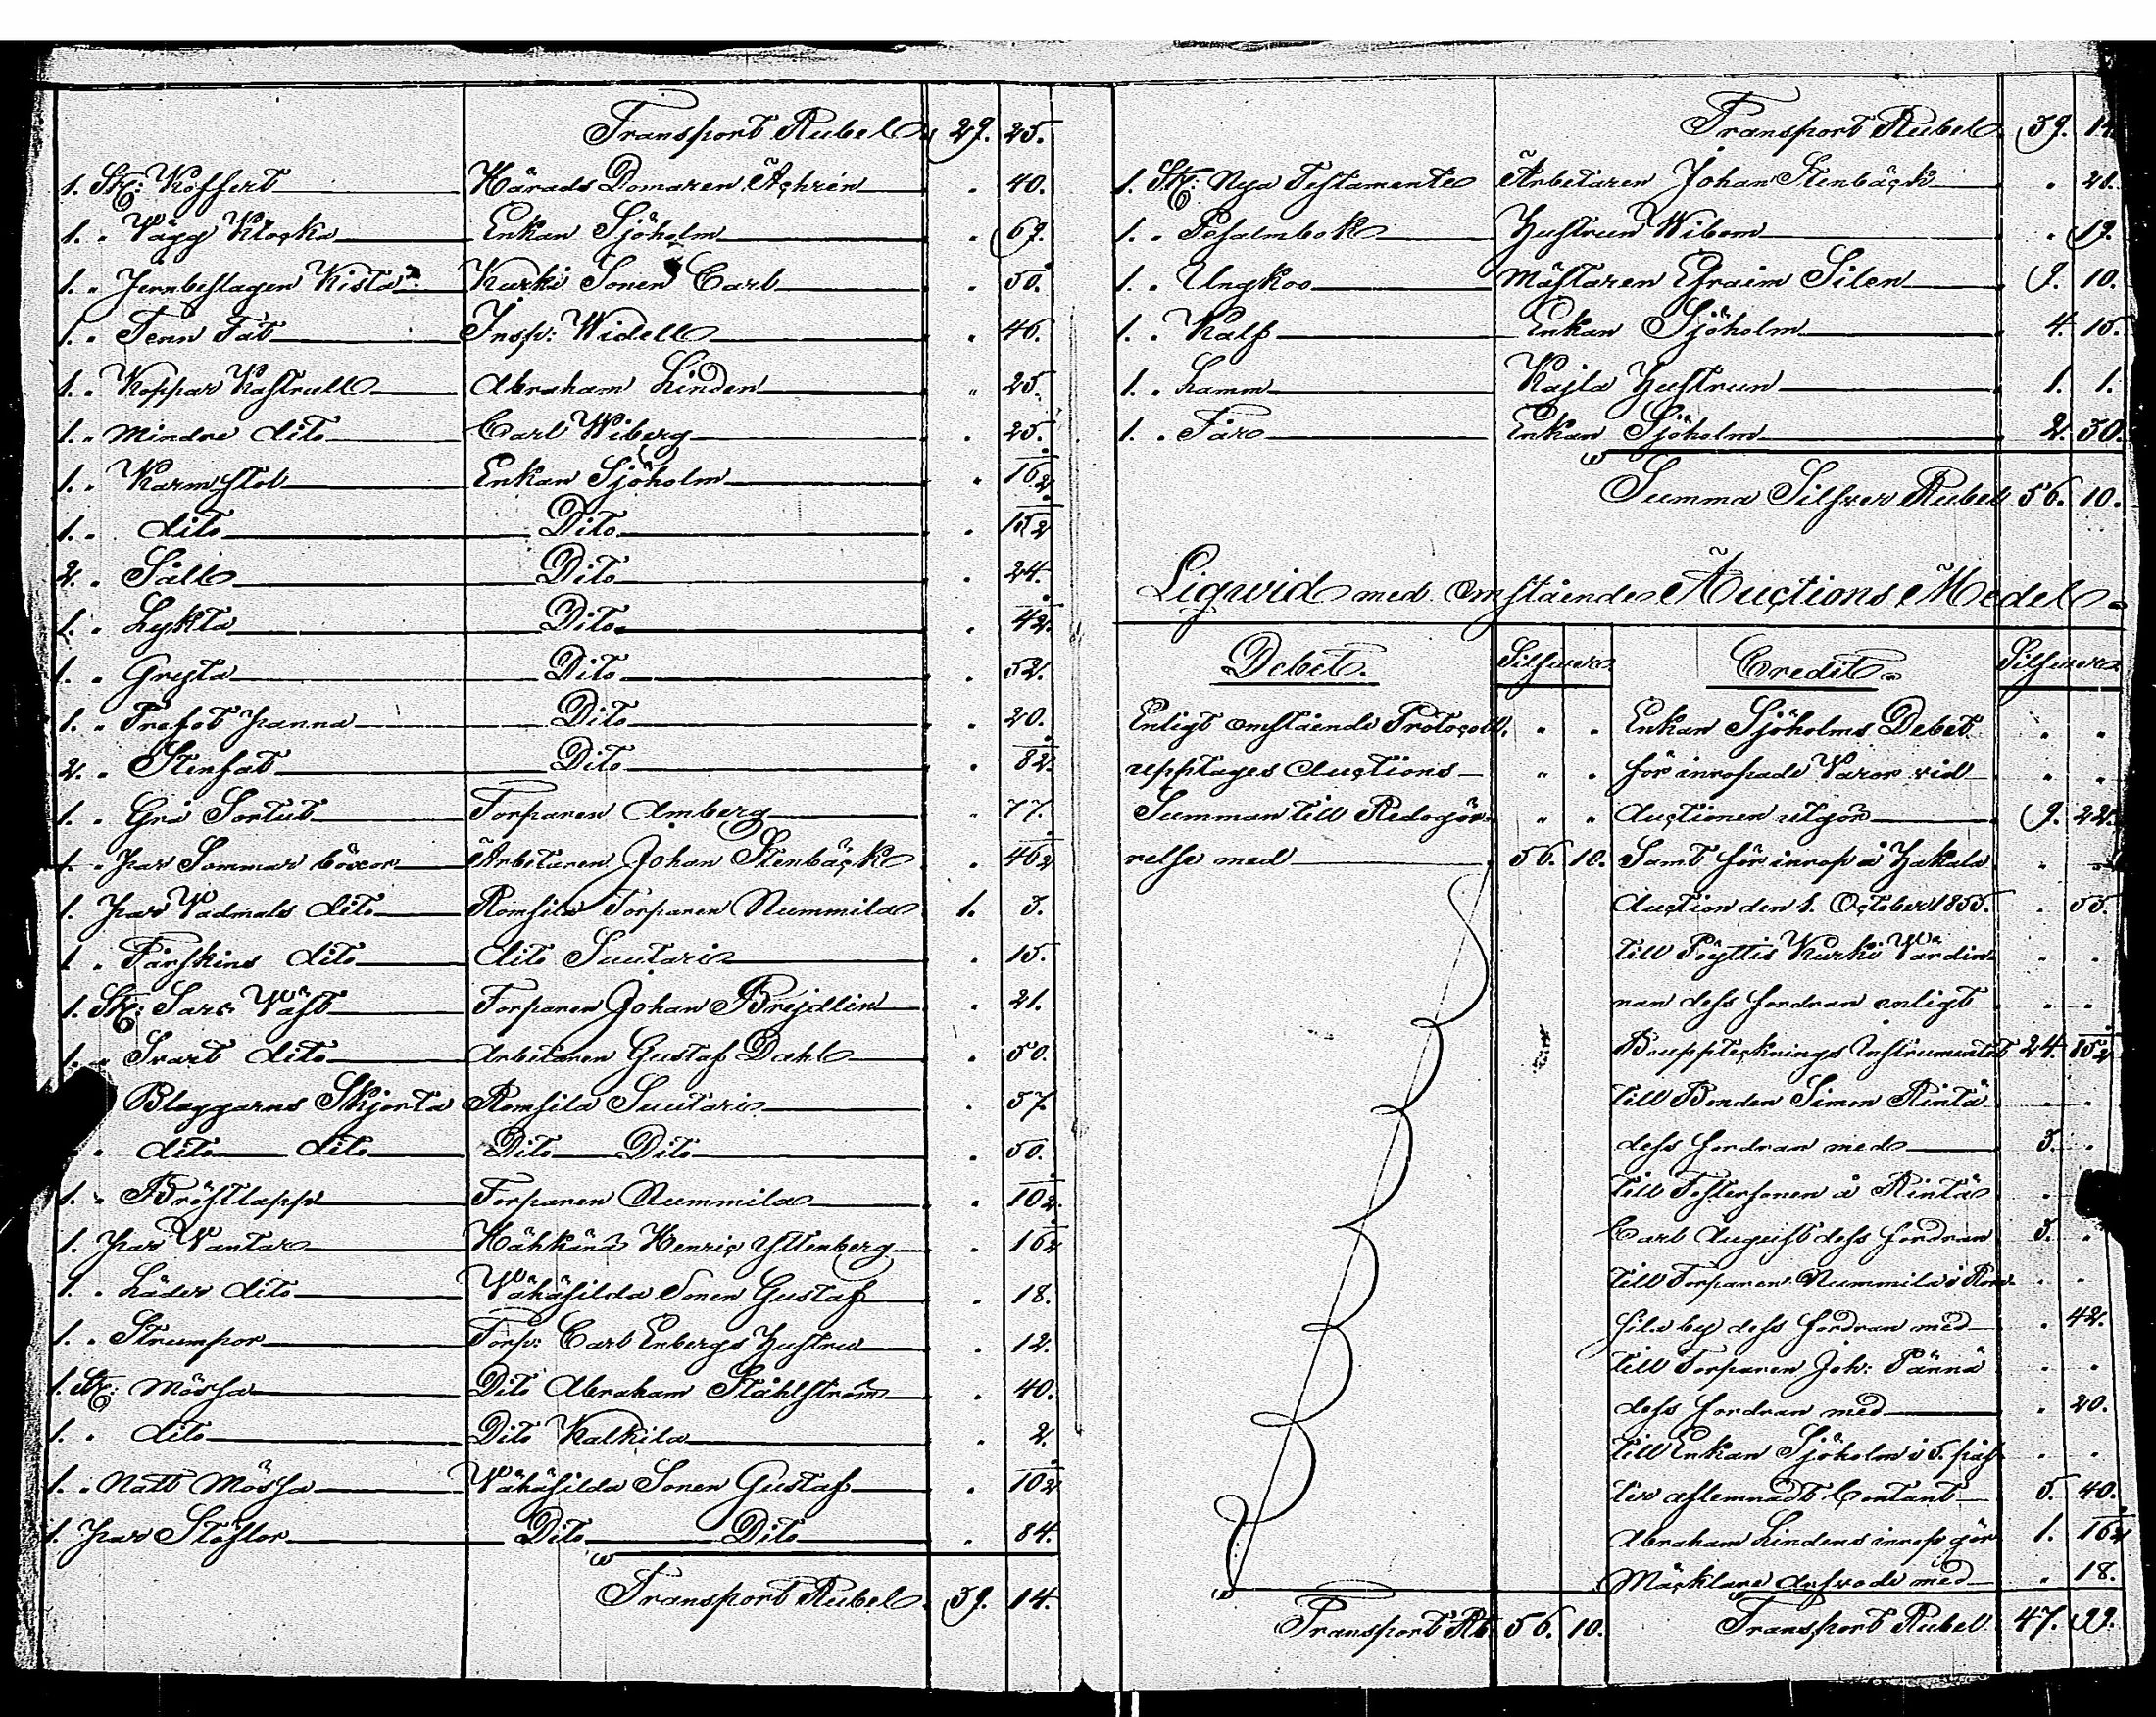 Transport Rubel 29. 25.
1. St: Koffert Härads Domaren Achrén . 40.
1. " Vägg Klocka Enkan Sjöholm . 69.
1. " Jernbeslagen Kista Kurki Sonen Carl . 50.
1. " Tenn Fat Insp: Widell . 46.
1. " Koppar Kastrull Abraham Linden " 25.
1. " Mindre dito Carl Wiberg . 25.
1. " Karmstol Enkan Sjöholm " 16½
1. " dito Dito . 15½
2. " Såll Dito . 24.
1. " Lykta Dito . 4½.
1. " Gryta Dito . 52.
1. " Trefot panna Dito . 20.
2. " Stenfat Dito . 8½.
1. " Grå Sortut Torparen Amberg . 77.
1. " par Sommar böxor Arbetaren Johan Stenbäck . 46½
1. par Vadmals dito Romsila Torparen Nummila 1. 3.
1 " Fårskins dito dito Suutari . 15.
1. St: Sars Väst Torparen Johan Brejdlin . 21.
1. " Svart dito Arbetaren Gustaf Dahl . 50.
Blaggarns Skjorta Romsila Suutari . 37.
" dito dito Dito Dito . 50.
1. " Bröstlapp Torparen Nummila . 10½.
1. par Vantar Hähkänä Henric Yttenberg . 16½
1. " Läder dito Wähäsilda Sonen Gustaf . 18.
1. " Strumpor Torp: Carl Enbergs Hustru . 12.
1. St: Mössa Dito Abraham Ståhlström . 40.
1. " dito Dito Kalkila . 2.
1. " Natt Mössa Wähäsilda Sonen Gustaf . 10½
1. par Stöflor Dito Dito . 84.
Transport Rubel 39. 14.
Transport Rubel 39. 14.
1. St: Nya Testamente Arbetaren Johan Stenbäck . 21.
1. " Psalmbok Hustrun Wibom . 19.
1. " Ungko Mästaren Efraim Silen 9. 10.
1. " Kalf Enkan Sjöholm 4. 15.
1. " Lamm Kajla Hustrun 1. 1.
1. " Får Enkan Sjöholm 2. 30.
Summa Silfver Rubel 56. 10.
Liqwid med Omstående Auctions Medel.
Debet. Silfwer Credit. Silfwer
Enligt omstående Protocoll. " . Enkan Sjöholms Debet . "
upptages Auctions " . för inropade Varor vid . "
Summan till Redogö- " " Auctionen utgör 9. 22.
relse med 56. 10. Samt för inrop å Hakala . .
Auction den 1. October 1855. . 55.
till Pöyttis Kurki Värdin . .
nan dess fordran enligt . .
Boupptecknings Instrumentet 24. 15½
till Bonden Simon Rintä . .
dess fordran med 3. .
till Fostersonen å Rintä .
Carl August dess fordran 3. .
till Torparen Nummila i Rom . .
sila by dess fordran med . 42.
till Torparen Joh: Pännä . .
dess fordran med . 20.
till Enkan Sjöholm i 5. pås . .
ter aflemnadt Contant 5. 40.
Abraham Lindens inrop gör 1. 16½
Mäcklare Arfvode med . 18.
Transport Rb 56. 10. Transport Rubel 47. 99.